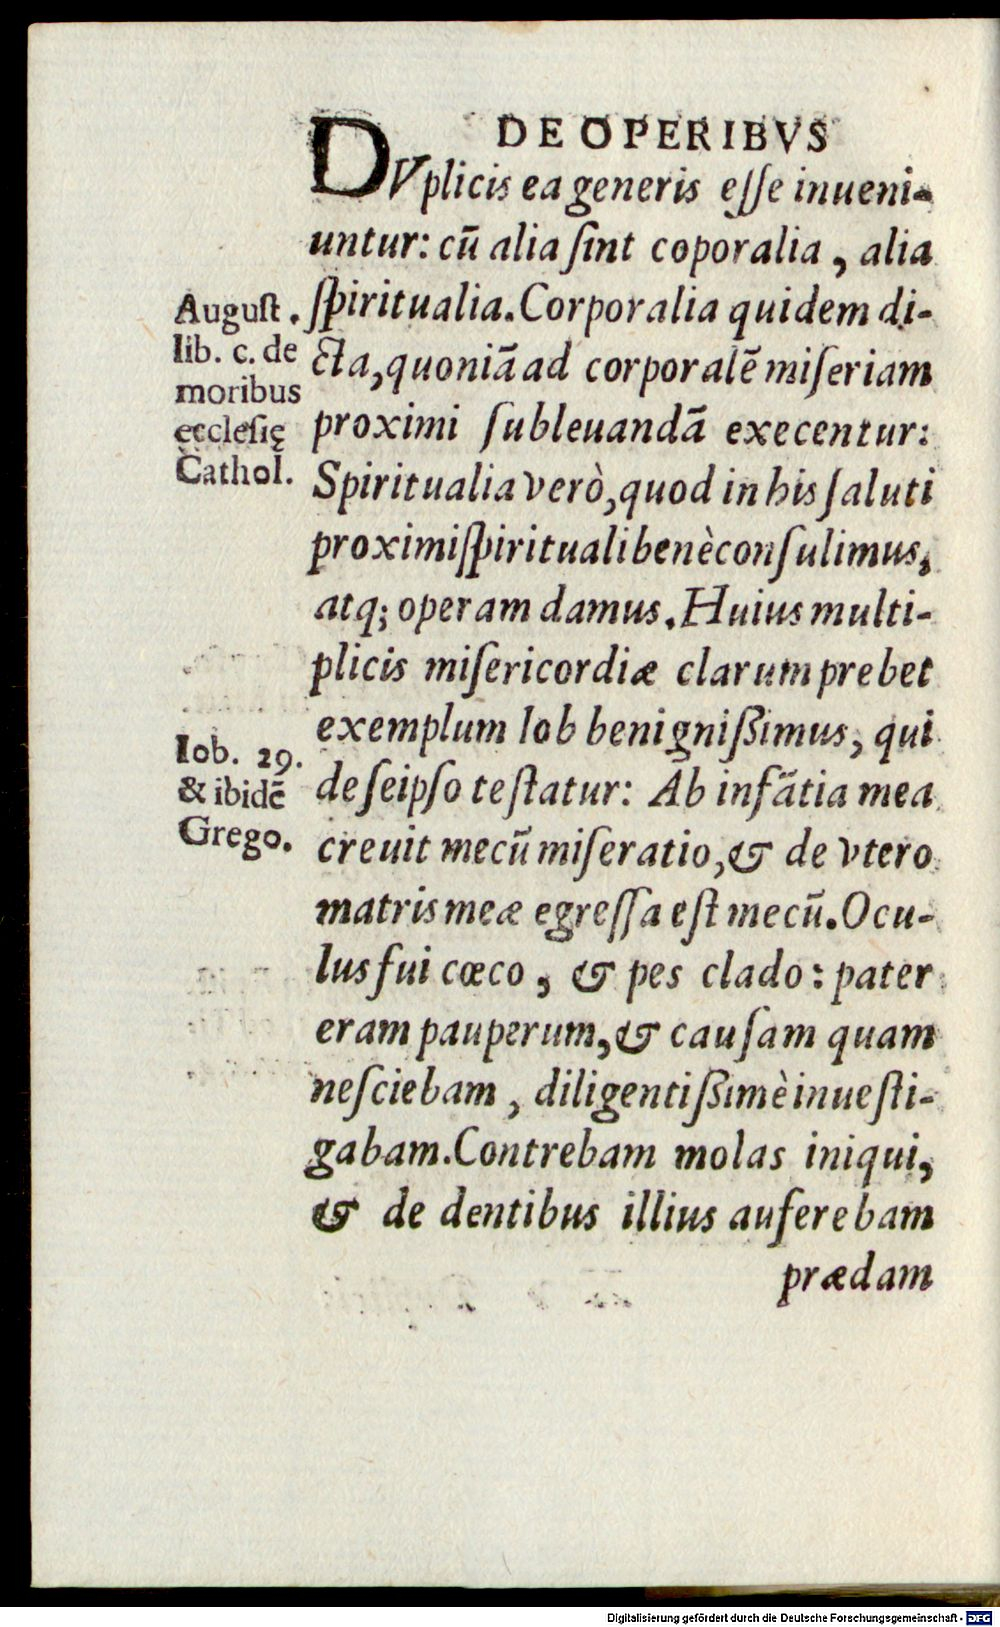 DE OPERIBVS
DVplicis ea generis eſſe inueni-
untur: cū alia ſint coporalia, alia
ſpiritualia. Corporalia quidem di-
cta, quoniā ad corporalē miſeriam
proximi ſubleuandā execentur:
Spiritualia verò, quod in his ſaluti
proximi ſpirituali benè conſulimus,
atq; operam damus. Huius multi-
plicis miſericordiæ clarum prebet
exemplum Iob benignißimus, qui
de ſeipſo teſtatur: Ab infātia mea
creuit mecū miſeratio, & de vtero
matris meæ egreſſa eſt mecū. Ocu-
lus fui cœco, & pes clado: pater
eram pauperum, & cauſam quam
neſciebam, diligentißimè inueſti-
gabam. Contrebam molas iniqui,
& de dentibus illius auferebam
prædam
Auguſt.
lib. c. de
moribus
eccleſię
Cathol.
Iob. 29.
& ibidē
Grego.
Digitalisierung gefördert durch die Deutsche Forschungsgemeinschaft - DFG